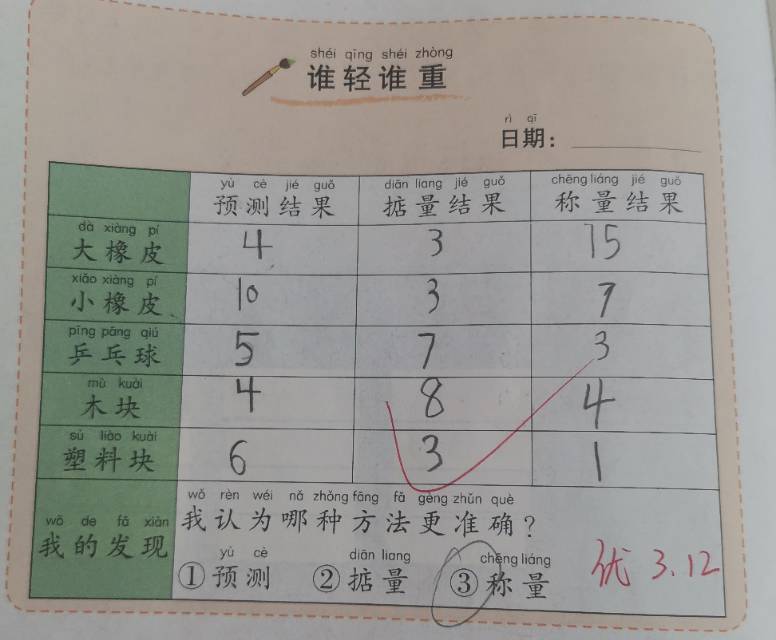 shéi qīng shéi zhòng
谁轻谁重
rì qī
日期：
yù cè jié guǒ diān liang jié guǒ chēng liáng jié guǒ
预测结果 掂量结果 称量结果
dà xiàng pí
大橡皮 4 3 15
xiǎo xiàng pí
小橡皮 10 3 7
pīng pāng qiú
乒乓球 5 7 3
mù kuài
木块 4 8 4
sù liào kuài
塑料块 6 3 1
wǒ rèn wéi nǎ zhǒng fāng fǎ gèng zhǔn què
我认为哪种方法更准确？
wǒ de fā xiàn
我的发现
yù cè diān liang chēng liáng
①预测 ②掂量 ③称量
优 3.12